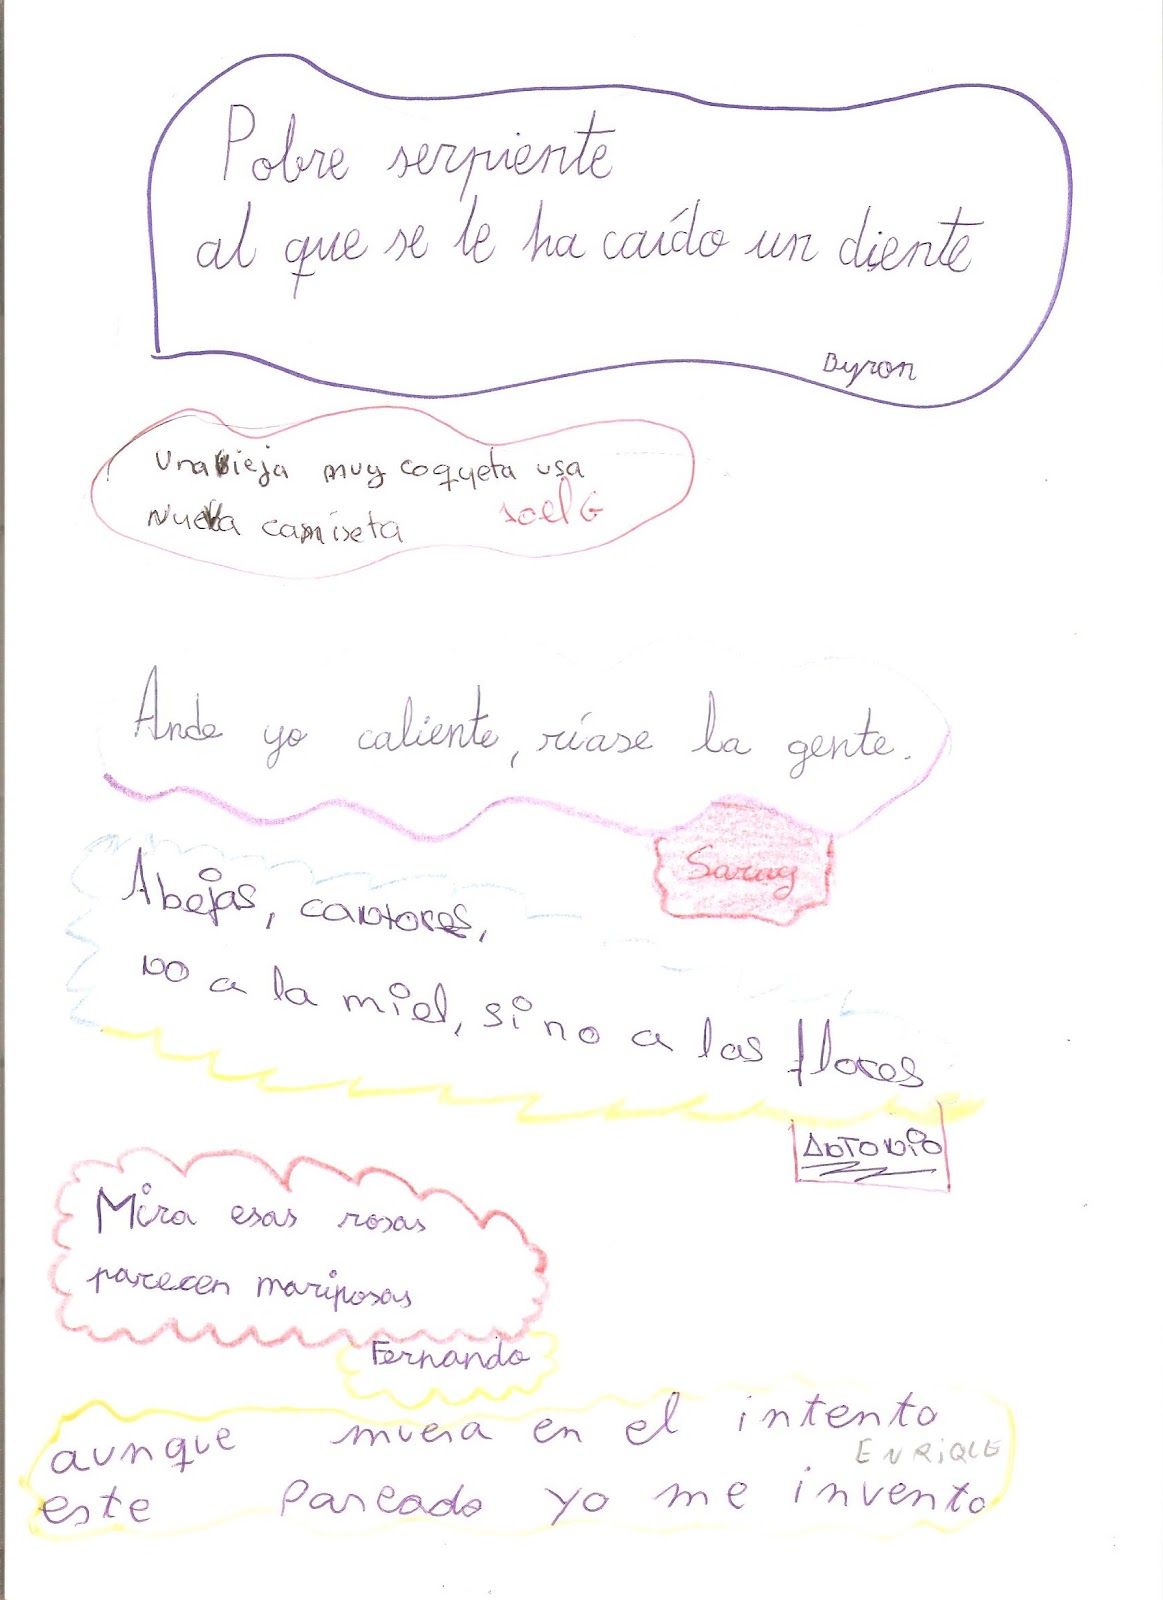 Pobre serpiente
al que se le ha caído un diente
Byron
Una vieja muy coqueta usa
Nueva camiseta
Joel G
Ande yo caliente, ríase la gente.
Saray
Abejas, cantores,
no a la miel, sino a las flores
ANTONIO
Mira esas rosas
parecen mariposas
Fernando
aunque muera en el intento
ENRIQUE
este pareado yo me invento